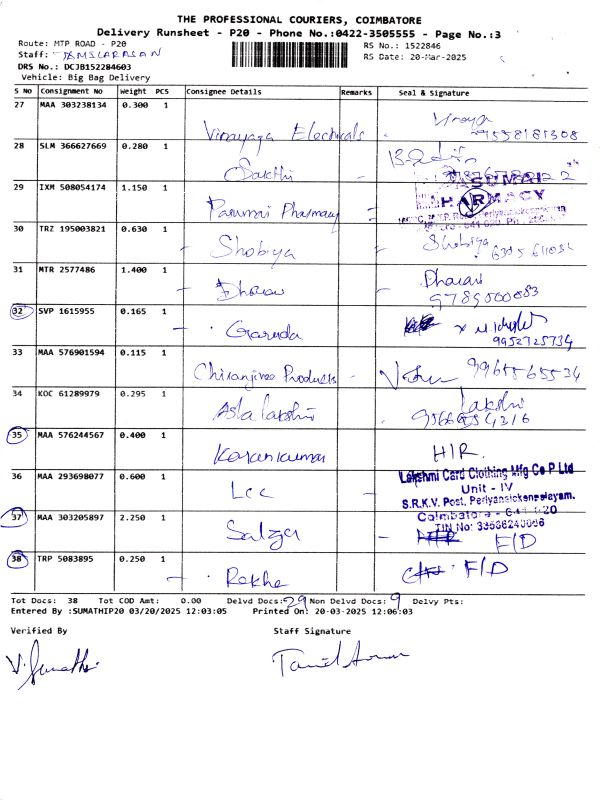 THE PROFESSIONAL COURIERS, COIMBATORE
Delivery Runsheet - P20 - Phone No.:0422-3505555 - Page No.:3
Route: MTP ROAD - P20
RS No.: 1522846
Staff: TAMILARASAN
RS Date: 20-Mar-2025
DRS No.: DCJB152284603
Vehicle: Big Bag Delivery
S NO Consignment No Weight PCS Consignee Details Remarks Seal & Signature
27 MAA 303238134 0.300 1 Vinayaga Electricals Vinaya 9558181308
28 SLM 366627669 0.280 1 Sakthi
29 IXM 508054174 1.150 1 Pasumai Pharmacy PASUMAI PHARMACY
30 TRZ 195003821 0.630 1 Shobiya Shobiya
31 MTR 2577486 1.400 1 Dharani 9789500083
32 SVP 1615955 0.165 1 Garuda 9952725734
33 MAA 576901594 0.115 1 Chiranjivee Products 9965565534
34 KOC 61289979 0.295 1 Astalakshmi Lakshmi
35 MAA 576244567 0.400 1 Karankumar H/R.
36 MAA 293698077 0.600 1 Lcc Lakshmi Card Clothing Mfg Co P Ltd
Unit - IV
S.R.K.V. Post, Periyanaickenpalayam.
Coimbatore - 641 020
37 MAA 303205897 2.250 1 Salzer F/D
38 TRP 5083895 0.250 1 Rekha F/D
Tot Docs: 38 Tot COD Amt: 0.00 Delvd Docs: 29 Non Delvd Docs: 9 Delvy Pts:
Entered By :SUMATHIP20 03/20/2025 12:03:05 Printed On: 20-03-2025 12:06:03
Verified By Staff Signature
V. Sumathi